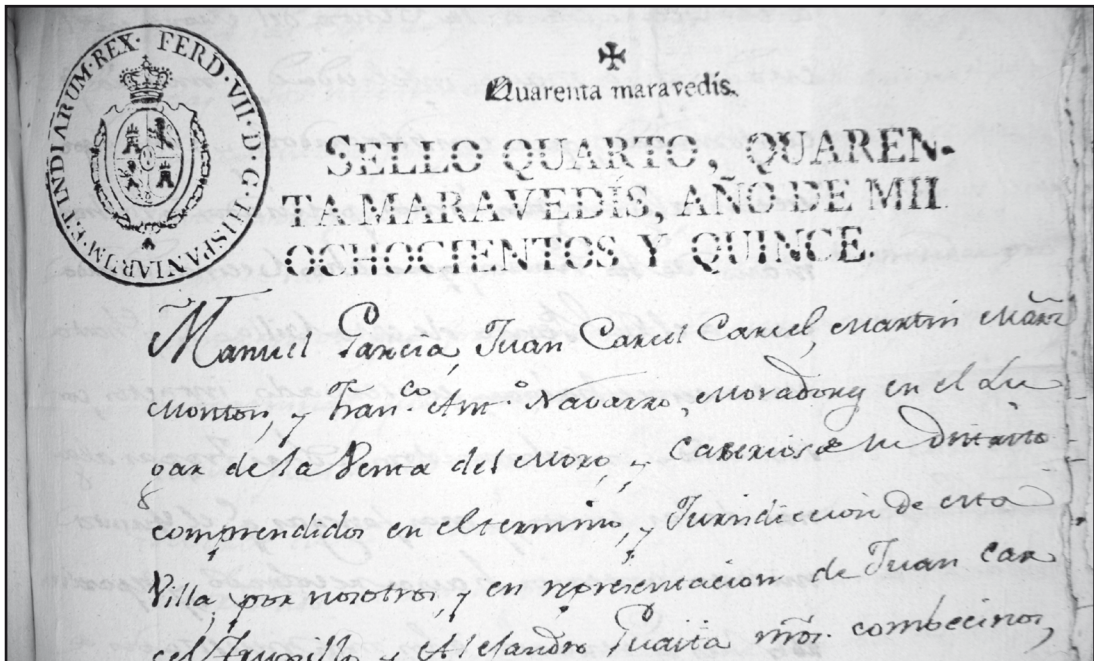 FERD·VII·D·G·HISPANIARUM·ET INDIARUM·REX·
Quarenta maravedis.
SELLO QUARTO, QUAREN-
TA MARAVEDÍS, AÑO DE MIL
OCHOCIENTOS Y QUINCE.
Manuel Garcia, Juan Carcel Carcel, Martin Mārz
Monton, y Fran.co Ant.o Navarro, Moradores en el Lu
gar de la Venta del Moro, y Caserios de su distrito
comprendidos en el termino, y Jurisdiccion de esta
Villa, por nosotros, y en representacion de Juan Car
cel Trujillo y Alejandro Guaita nr̃os. combecinos,